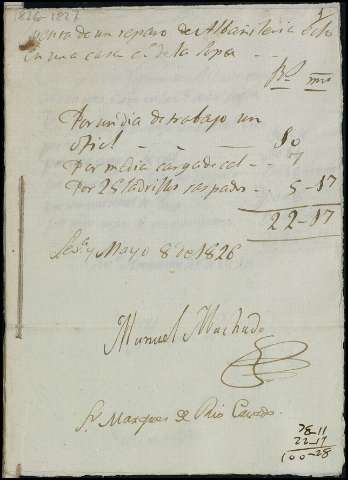 1826-1827
Cuenta de un reparo de Albañileria Echo
en una casa C.e de la Sopa
Rs mrs
Por un dia de trabajo un
Ofical 10
Por media carga de cal 7
Por 25 ladrillos raspados 5-17
22-17
Sev.a y Mayo 8 de 1826
Manuel Machado
Sr. Marques de Rio
78-11
22-17
100-28